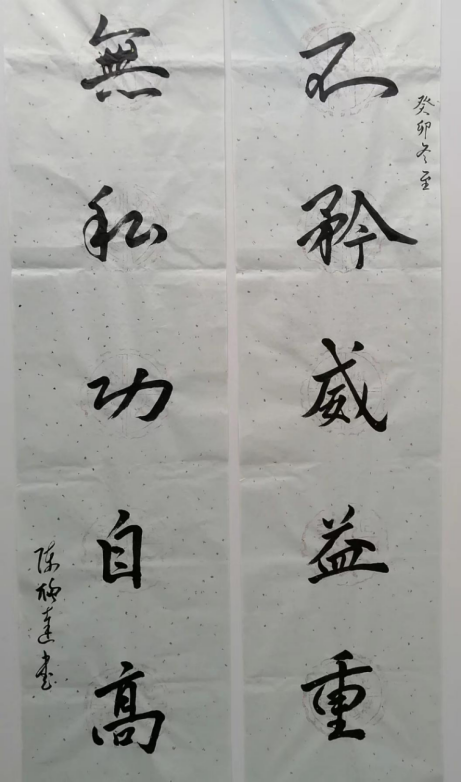 癸卯冬至
不矜威益重
無私功自高
陈
达书